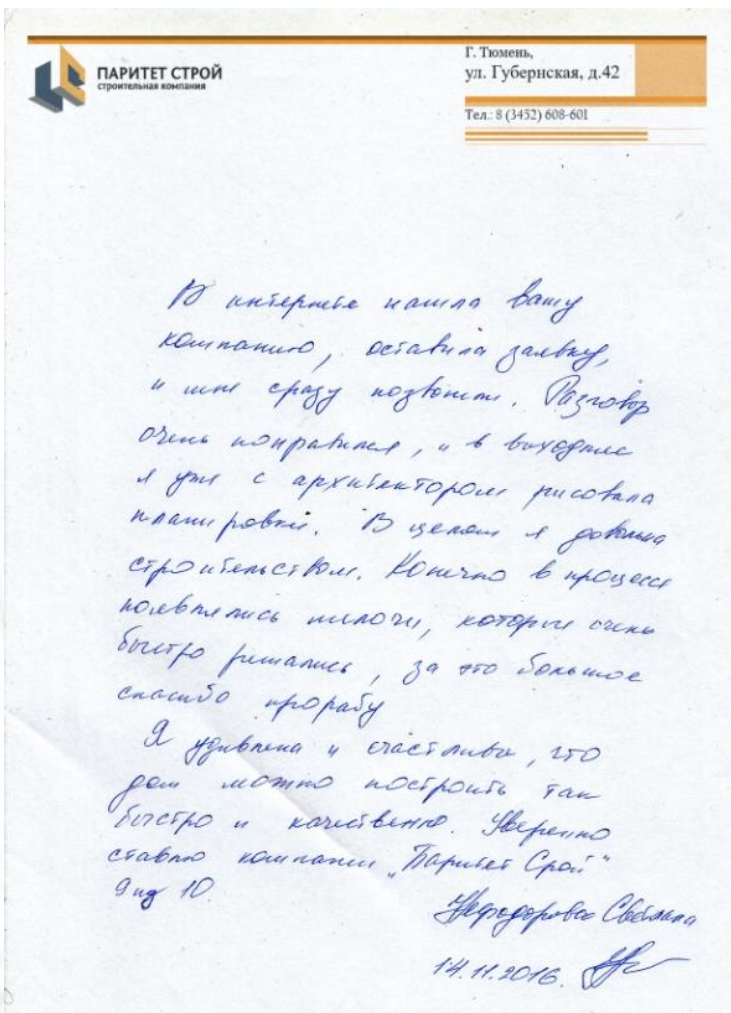 ПАРИТЕТ СТРОЙ
строительная компания
Г. Тюмень,
ул. Губернская, д.42
Тел.: 8 (3452) 608-601
В интернете нашла вашу
компанию, оставила заявку,
и мне сразу позвонили. Разговор
очень понравился, и в выходные
я уже с архитектором рисовала
планировки. В целом я довольна
строительством. Конечно в процессе
появлялись мелочи, которые очень
быстро решались, за это большое
спасибо прорабу
Я удивлена и счастлива, что
дом можно построить так
быстро и качественно. Уверенно
ставлю компании „Паритет Срой"
9 из 10.
Светлана
14.11.2016.